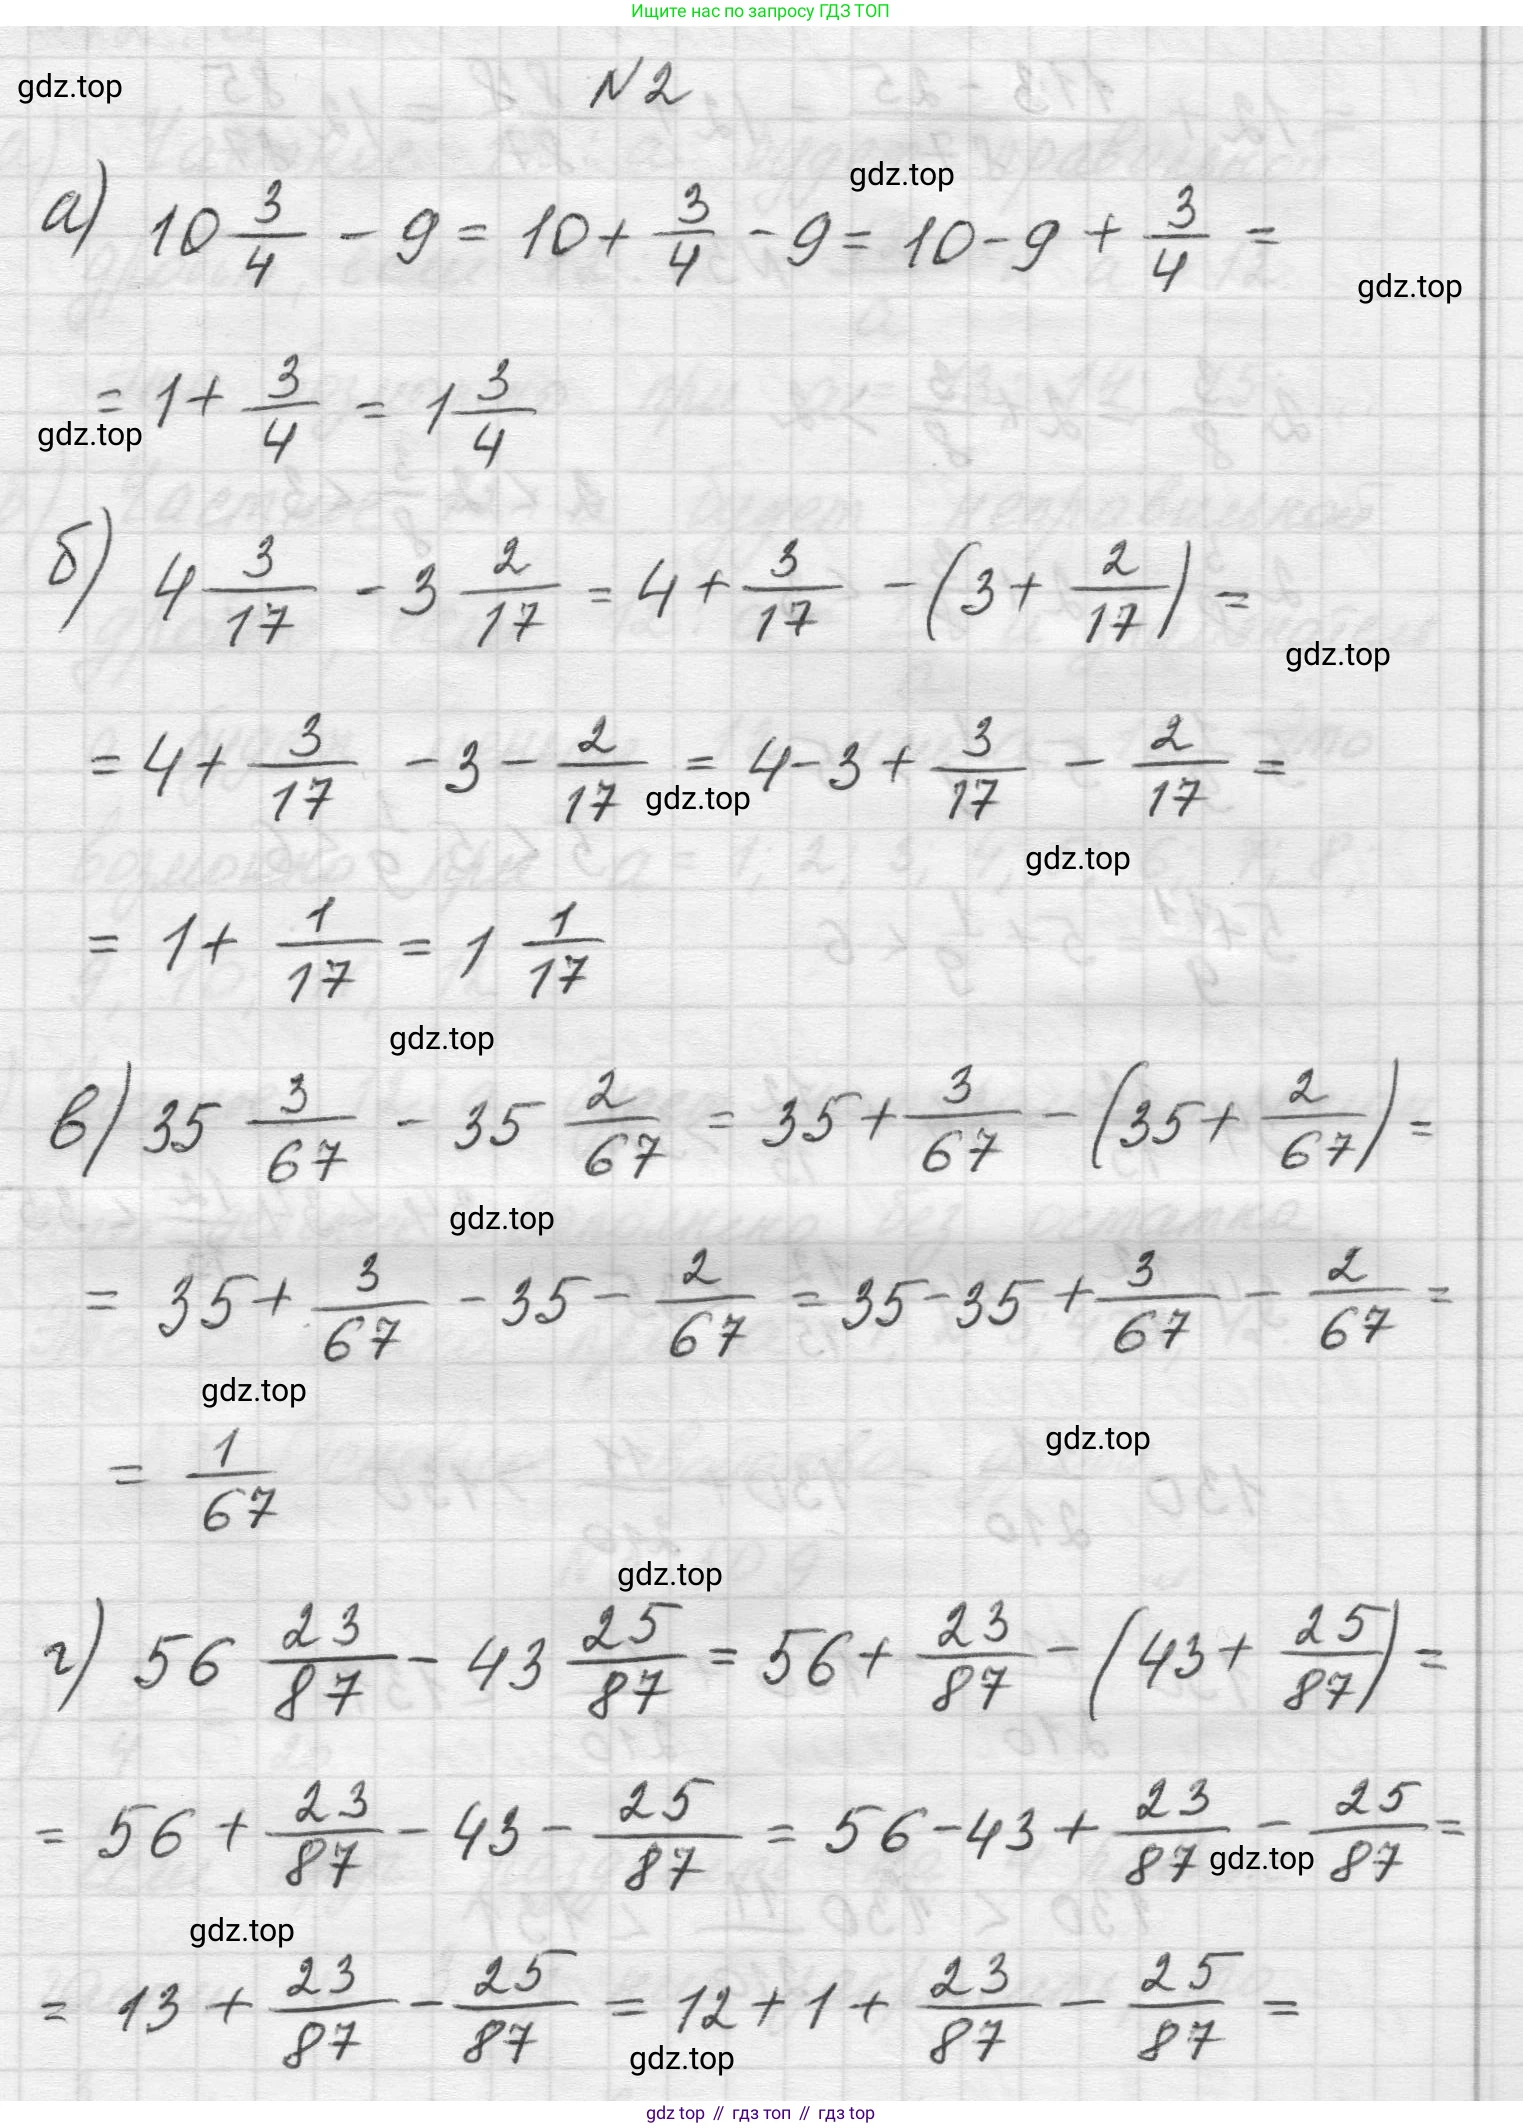 Ищите нас по запросу ГДЗ ТОП
N2
gdz.top
gdz.top
а) 10 3/4 - 9 = 10 + 3/4 - 9 = 10 - 9 + 3/4 =
gdz.top
= 1 + 3/4 = 1 3/4
gdz.top
б) 4 3/17 - 3 2/17 = 4 + 3/17 - (3 + 2/17) =
gdz.top
= 4 + 3/17 - 3 - 2/17 = 4 - 3 + 3/17 - 2/17 =
gdz.top
gdz.top
= 1 + 1/17 = 1 1/17
gdz.top
в) 35 3/67 - 35 2/67 = 35 + 3/67 - (35 + 2/67) =
gdz.top
= 35 + 3/67 - 35 - 2/67 = 35 - 35 + 3/67 - 2/67 =
gdz.top
gdz.top
= 1/67
gdz.top
г) 56 23/87 - 43 25/87 = 56 + 23/87 - (43 + 25/87) =
= 56 + 23/87 - 43 - 25/87 = 56 - 43 + 23/87 - 25/87 =
gdz.top
gdz.top
= 13 + 23/87 - 25/87 = 12 + 1 + 23/87 - 25/87 =
gdz.top
gdz top // гдз топ // гдз top